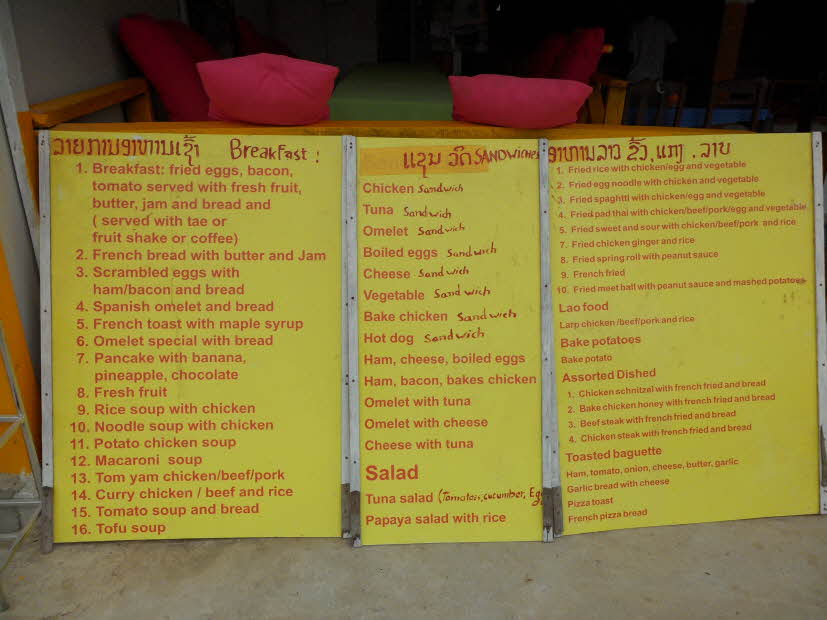 ລາຍການອາຫານເຊົ້າ Breakfast:
1. Breakfast: fried eggs, bacon,
tomato served with fresh fruit,
butter, jam and bread and
( served with tae or
fruit shake or coffee)
2. French bread with butter and Jam
3. Scrambled eggs with
ham/bacon and bread
4. Spanish omelet and bread
5. French toast with maple syrup
6. Omelet special with bread
7. Pancake with banana,
pineapple, chocolate
8. Fresh fruit
9. Rice soup with chicken
10. Noodle soup with chicken
11. Potato chicken soup
12. Macaroni soup
13. Tom yam chicken/beef/pork
14. Curry chicken / beef and rice
15. Tomato soup and bread
16. Tofu soup
ແຊນ ວິດ SANDWICHES
Chicken Sandwich
Tuna Sandwich
Omelet Sandwich
Boiled eggs Sandwich
Cheese Sandwich
Vegetable Sandwich
Bake chicken Sandwich
Hot dog Sandwich
Ham, cheese, boiled eggs
Ham, bacon, bakes chicken
Omelet with tuna
Omelet with cheese
Cheese with tuna
Salad
Tuna salad (Tomatoes, cucumber, Egg
Papaya salad with rice
ອາຫານລາວ ຂົ້ວ, ແກງ . ລາບ
1. Fried rice with chicken/egg and vegetable
2. Fried egg noodle with chicken and vegetable
3. Fried spaghtti with chicken/egg and vegetable
4. Fried pad thai with chicken/beef/pork/egg and vegetable
5. Fried sweet and sour with chicken/beef/pork and rice
7. Fried chicken ginger and rice
8. Fried spring roll with peanut sauce
9. French fried
10. Fried meet ball with peanut sauce and mashed potatoes
Lao food
Larp chicken /beef/pork and rice
Bake potatoes
Bake potato
Assorted Dished
1. Chicken schnitzel with french fried and bread
2. Bake chicken honey with french fried and bread
3. Beef steak with french fried and bread
4. Chicken steak with french fried and bread
Toasted baguette
Ham, tomato, onion, cheese, butter, garlic
Garlic bread with cheese
Pizza toast
French pizza bread